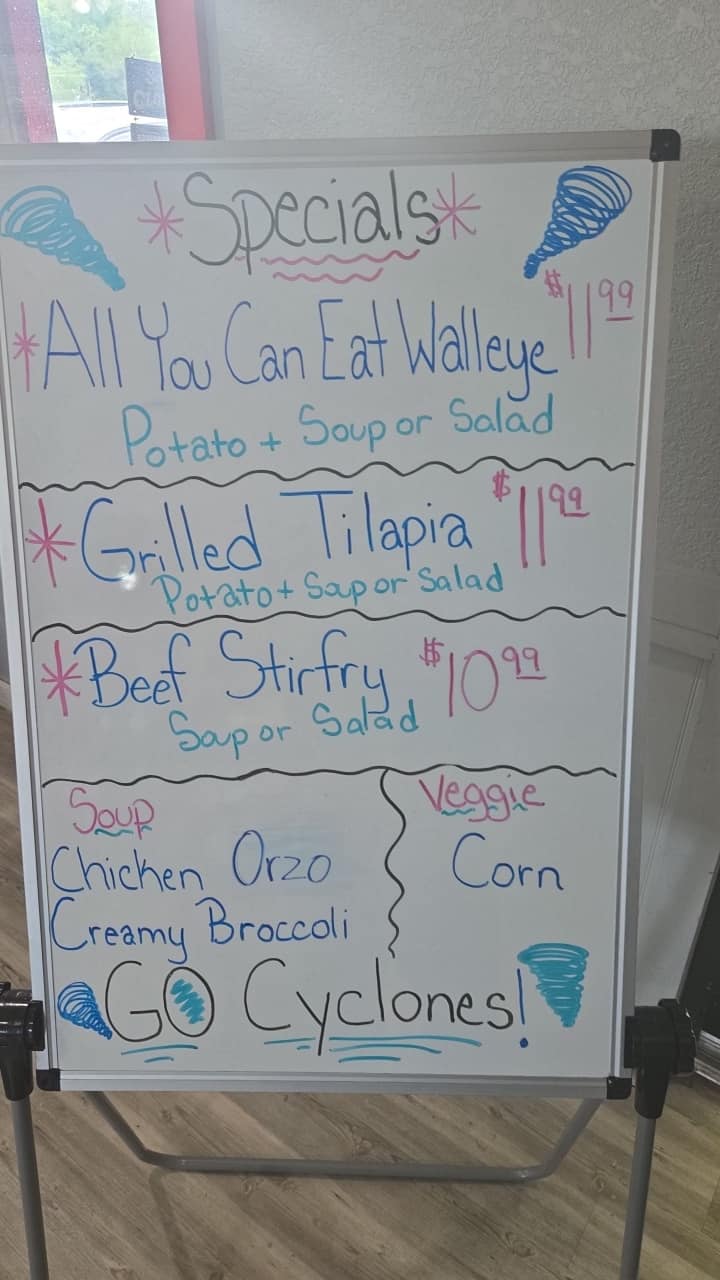 *Specials*
*All You Can Eat Walleye $11 99
Potato + Soup or Salad
*Grilled Tilapia $11 99
Potato + Soup or Salad
*Beef Stirfry $10 99
Soup or Salad
Soup
Chicken Orzo
Creamy Broccoli
Veggie
Corn
GO Cyclones!